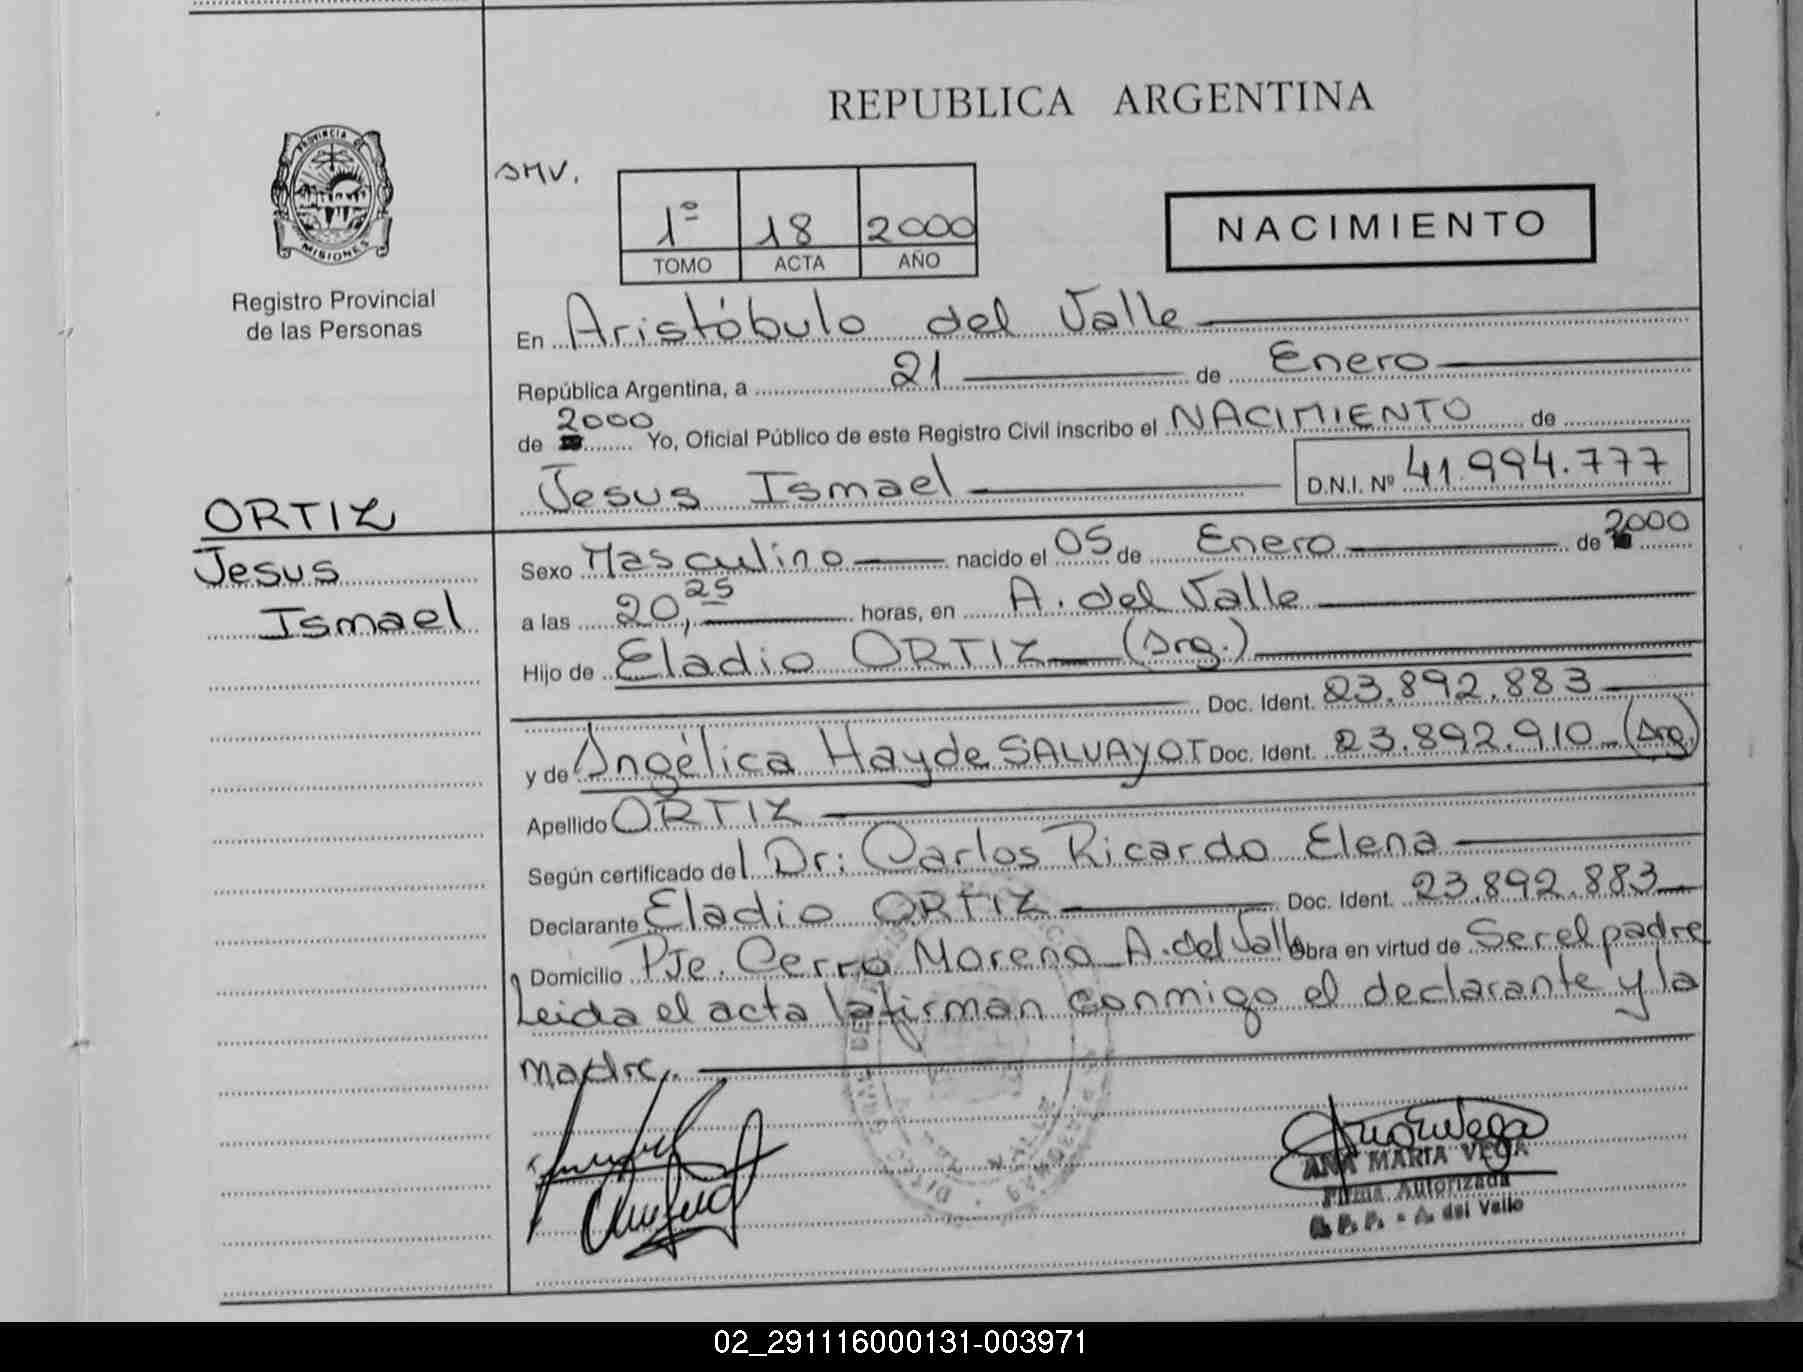 REPUBLICA ARGENTINA
PROVINCIA DE
MISIONES
Registro Provincial
de las Personas
SMV.
1º 18 2000
TOMO ACTA AÑO
NACIMIENTO
En Aristóbulo del Valle
República Argentina, a 21 de Enero
de 2000 Yo, Oficial Público de este Registro Civil inscribo el NACIMIENTO de
Jesus Ismael D.N.I. Nº 41.994.777
ORTIZ
Jesus
Ismael
Sexo Masculino nacido el 05 de Enero de 2000
a las 20,25 horas, en A. del Valle
Hijo de Eladio ORTIZ (Arg.)
Doc. Ident. 23.892.883
y de Angélica Hayde SALVAYOT Doc. Ident. 23.892.910 (Arg.)
Apellido ORTIZ
Según certificado del Dr: Carlos Ricardo Elena
Declarante Eladio ORTIZ Doc. Ident. 23.892.883
Domicilio Pje. Cerro Moreno A. del Valle obra en virtud de Ser el padre
Leida el acta la firman conmigo el declarante y la
madre.
ANA MARIA VEGA
Firma Autorizada
R. P. P. - A. del Valle
02_291116000131-003971